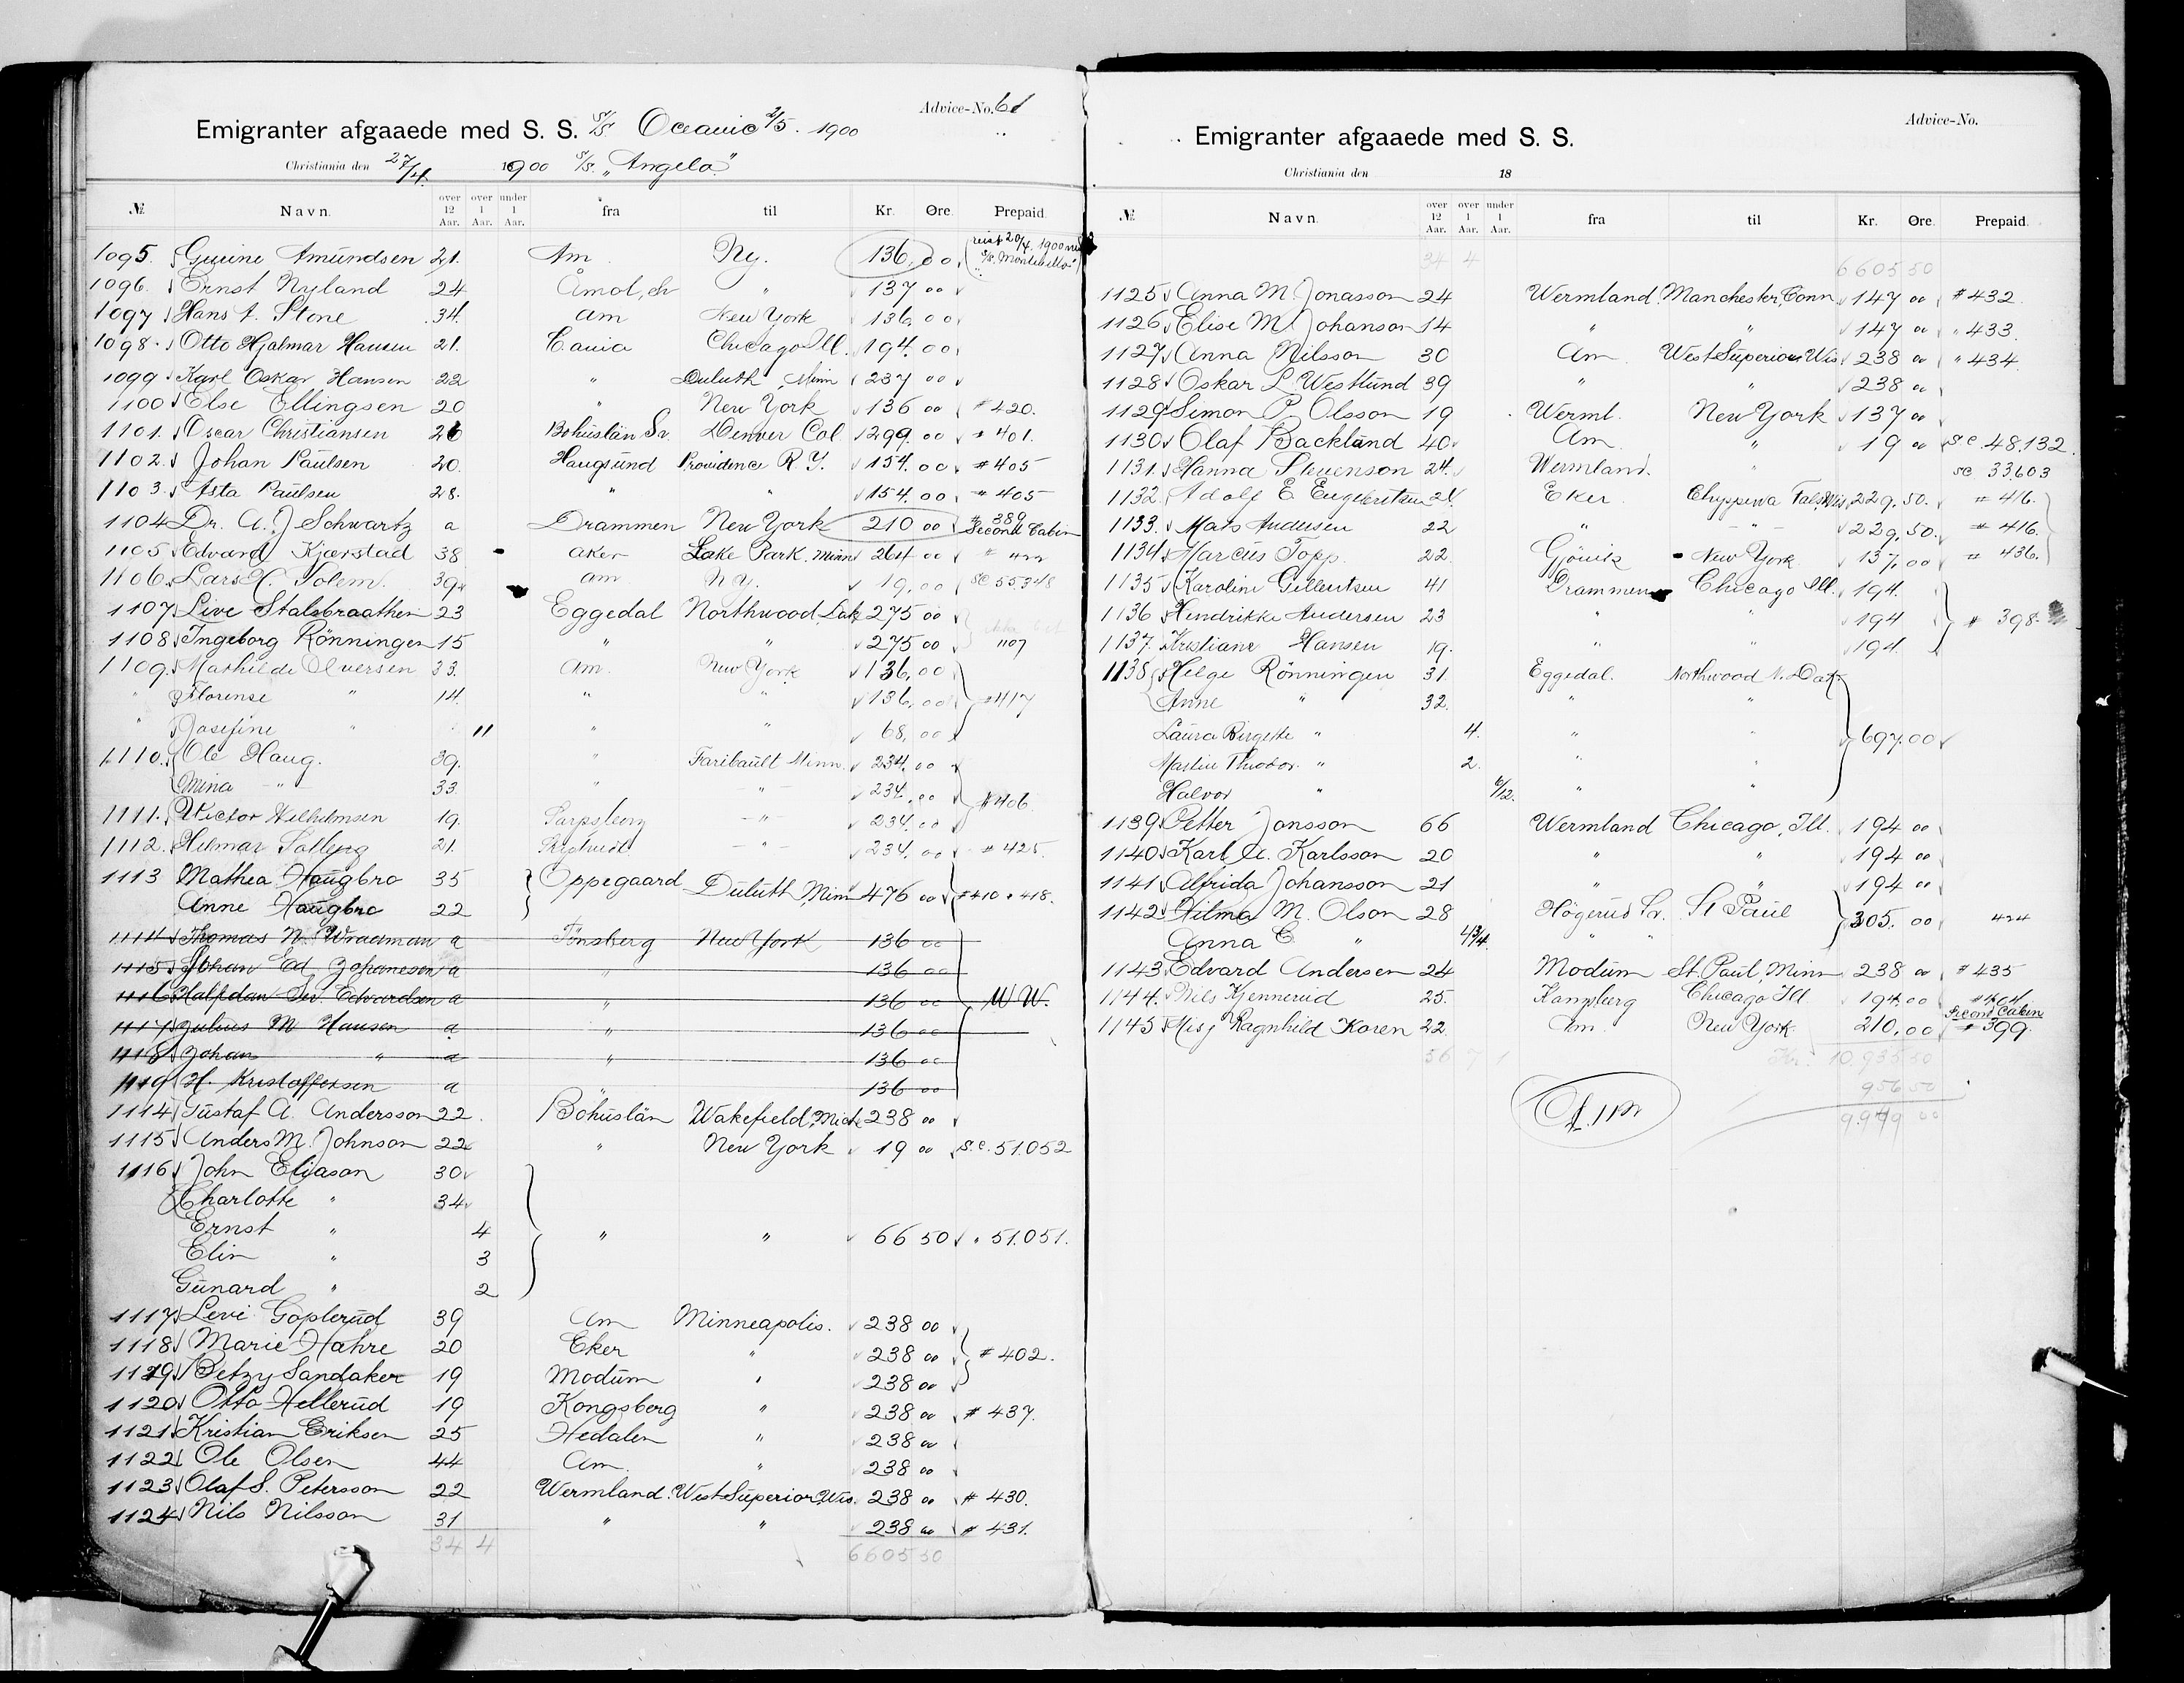 Advice-No. 61
Emigranter afgaaede med S. S. S/S Oceanic 2/5. 1900
Christiania den 27/4. 1900 S/S. „Angelo"
№ Navn. over 12 Aar. over 1 Aar. under 1 Aar. fra til Kr. Øre. Prepaid.
1095. Gurine Amundsen 21. Am. Ny. 136,00. reist 20/4. 1900 med S/S. Montebello"
1096. Ernst Nyland 24 Åmol, Sv " 137 00
1097 Hans A. Stone 34. Am New York 136,00
1098. Otto Hjalmar Hansen 21. Xania Chicago Ill. 194.00
1099 Karl Oskar Hansen 22 " Duluth, Minn 237 00
1100 Else Ellingsen 20 " New York 136 00 # 420.
1101. Oscar Christiansen 26 Bohuslän Sv. Denver Col. 299.00 " 401.
1102. Johan Paulsen 20. Haugsund Providence R. Y. 154.00 # 405
1103. Asta Paulsen 28. " " 154.00 " 405
1104 Dr. A. J Schwartz a Drammen New York 210 00 # 389 Second Cabin
1105 Edvard Kjærstad 38 Aker Lake Park. Minn 264 00 #
1106. Lars H. Solem. 39 Am N Y. 19,00 SC 55348
1107 Live Stalsbraathen 23 Eggedal Northwood, Dak 275 00
1108 Ingeborg Rönningen 15 " " 275 00 1107
1109. Mathilde Iversen 33. Am. New York 136,00
" Florense " 14. " " 136,00 #417
" Josefine " 11 " " 68,00
1110. Ole Haug. 39. " Faribault Minn. 234.00
Mina " 33. " " 234.00 #406
1111. Victor Wilhelmsen 19. Sarpsborg " 234.00
1112. Hilmar 21. " 234.00 # 425.
1113 Mathea Haugbro 35 Oppegaard Duluth, Minn 476 00 #410 " 418.
Anne Haugbro 22
1114 Thomas N. Wraaman a Tönsberg New York 136 00
1115 Johan Ed. Johanesen a " 136 00
1116 Halfdan Sev. Edvardsen a " 136 00 W W.
1117 Julius M Hansen a " 136 00
1118 Johan " a " 136 00
1119 H. Kristoffersen a 136 00
1114 Gustaf A. Andersson 22. Bohuslän Wakefield, Mich 238 00
1115 Anders M. Johnson 22 " New York 19 00 S.C. 51.052
1116 John Eliason 30
Charlotte " 34
Ernst " 4 " " 66 50 " 51.051.
Elin " 3
Gunard " 2
1117 Levi Goplerud 39 Am Minneapolis. 238 00
1118 Marie Hahre 20 Eker " 238 00 # 402.
1119 Betzy Sandaker 19 Modum " 238 00
1120 Otto Hellerud 19 Kongsberg " 238 00 # 437.
1121 Kristian Eriksen 25 Hedalen " 238 00
1122 Ole Olsen 44 Am. " 238 00
1123 Olaf S. Petersson 22 Wermland. West Superior, Wis. 238 00 # 430.
1124 Nils Nilsson 31 " " 238 00 # 431.
34 4 6605 50
Advice-No.
Emigranter afgaaede med S. S.
Christiania den 18
№ Navn. over 12 Aar. over 1 Aar. under 1 Aar. fra til Kr. Øre. Prepaid.
34 4 6605 50
1125 Anna M. Jonasson 24 Wermland. Manchester, Conn. 147 00 # 432.
1126 Elise M. Johanson 14 " " 147 00 " 433.
1127 Anna Nilsson 30 Am. West Superior Wis. 238 00 " 434.
1128 Oskar L. Westlund 39 " " 238 00
1129 Simon P. Olsson 19 Werml. New York 137 00
1130 Olaf Backlund 40 Am " 19 00 S C 48.132.
1131. Hanna Stevenson 24. Wermland. " SC 33.603
1132. Adolf E. Engebretsen 24. Eker. Chyppewa Falls, Wis. 229,50. # 416.
1133. Mats Andersen 22 " " 229,50. # 416.
1134 Marcus Topp. 22 Gjövik New York 137,00 # 436.
1135 Karoline Gulbertsen 41 Drammen Chicago Ill. 194.
1136 Hendrikke Andersen 23 " " 194 # 398.
1137. Kristiane Hansen 19. " " 194
1138 Helge Rönningen 31. Eggedal. Northwood N. Dak.
Anne " 32. " "
Laura Birgette " 4. " " 697.00
Martin Thodor. " 2. " "
Halvor " 6/12. " "
1139 Petter Jonsson 66 Wermland Chicago, Ill. 194 00
1140 Karl A. Karlsson 20 " " 194 00
1141 Alfrida Johansson 21 " " 194 00
1142 Hilma M. Olson 28 Högerud Sv. St Paul 305.00 424
Anna C. " 4 3/4. " "
1143 Edvard Andersen 24 Modum St. Paul, Minn 238 00 # 435
1144. Nils Kjennerud 25. Kongsberg Chicago Ill. 194,00 #404
1145 Misj Ragnhild Koren 22 Am New York 210,00 Second Cabin # 399
56 7 1 Kr. 10.935 50
956 50
9.979 00